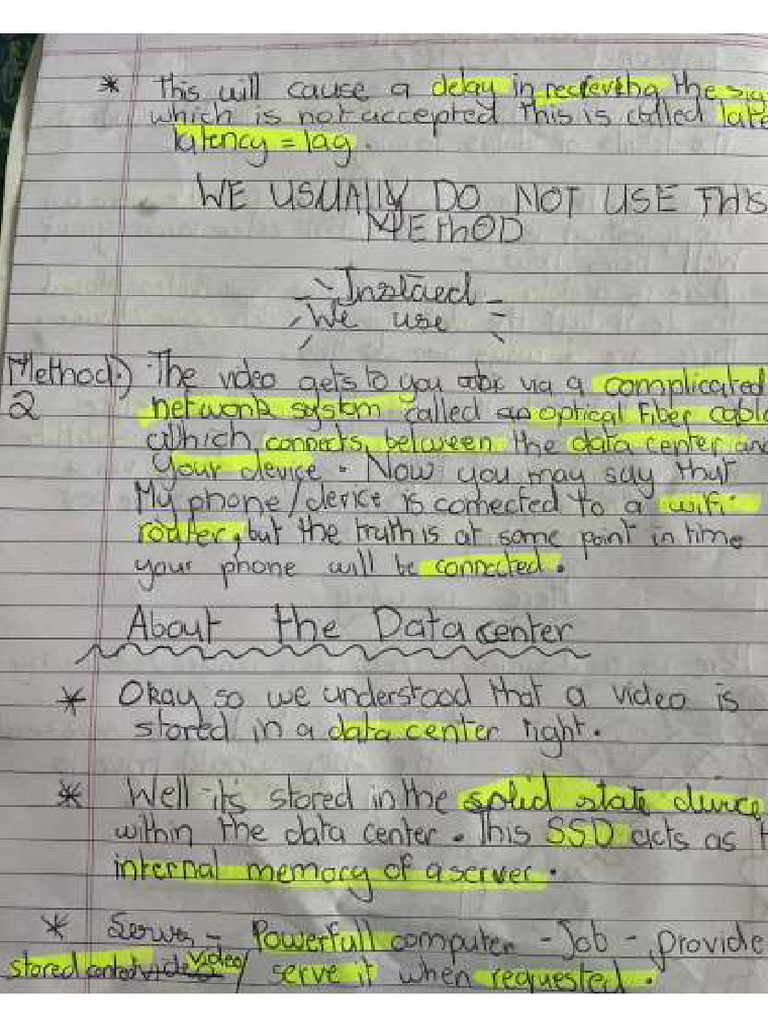 * This will cause a delay in recieving the sig
which is not accepted This is called late
latency = lag.
WE USUALLY DO NOT USE THIS
METHOD
Instaed
We use
Method) The video gets to you via a complicated
2 network system called optical Fiber cable
which connects between the data center and
your device. Now you may say that
My phone/device is connected to a wifi
router, but the truth is at some point in time
your phone will be connected.
About the Data center
* Okay so we understood that a video is
stored in a data center right.
* Well it's stored in the solid state divice
within the data center. This SSD acts as t
internal memory of a server.
* Server - Powerfull computer - Job - provide
stored video/ serve it when requested.